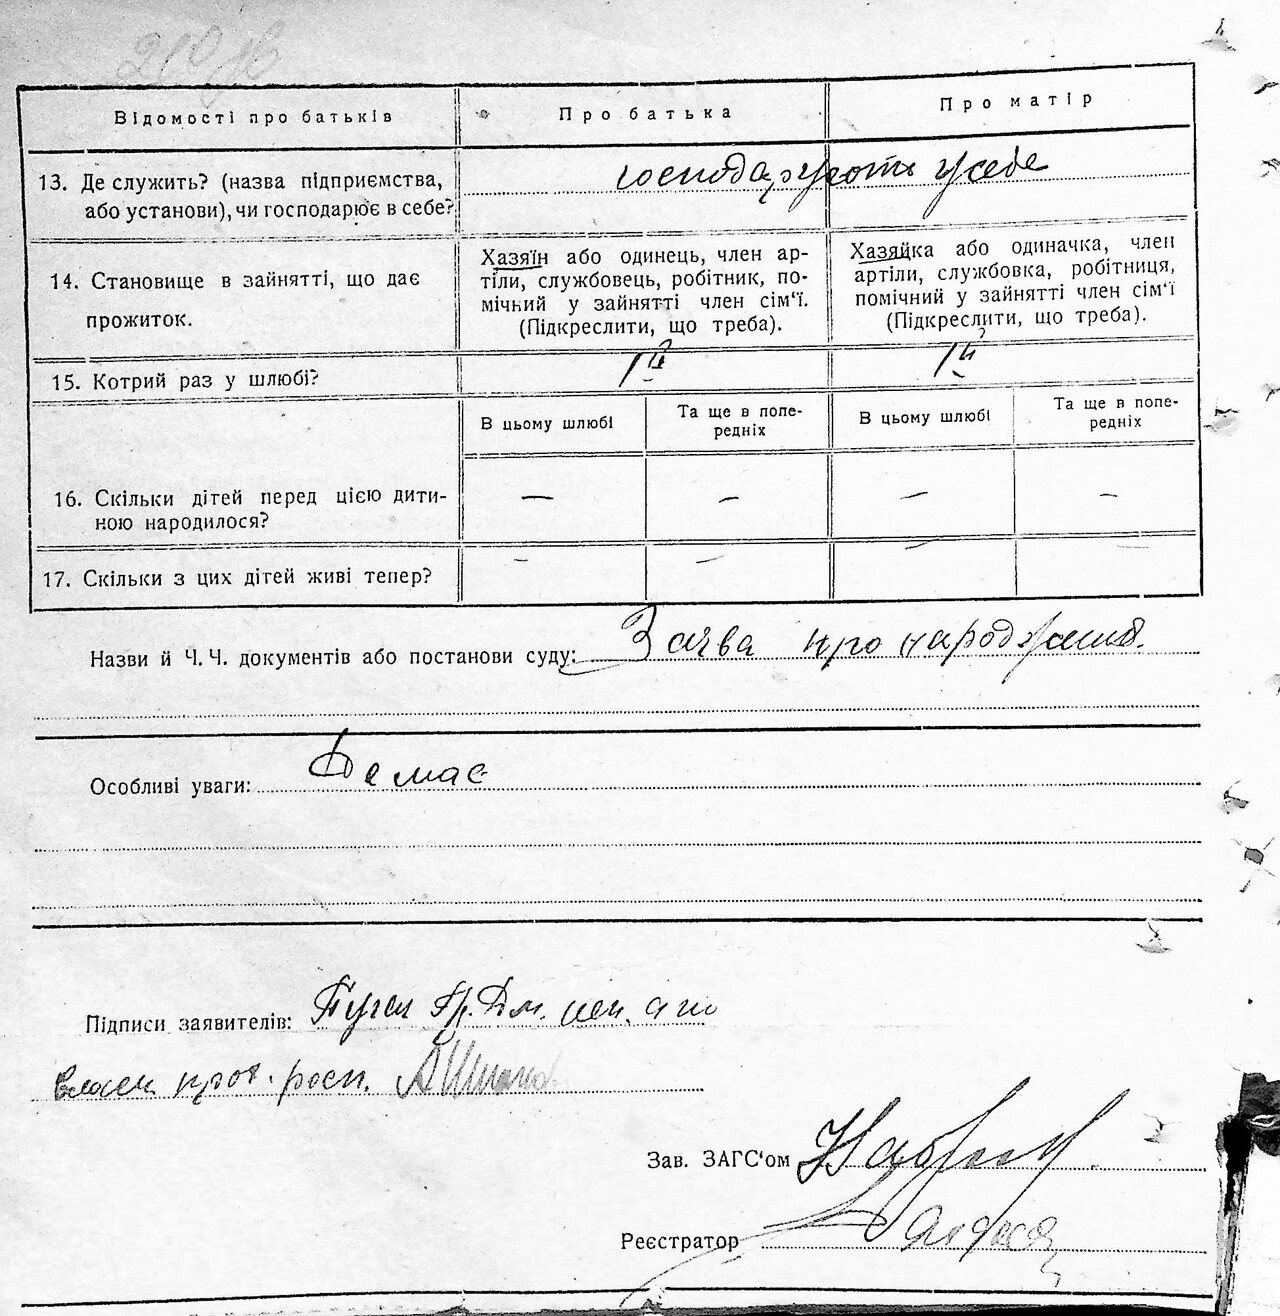 Відомості про батьків
Про батька
Про матір
13. Де служить? (назва підприємства,
або установи), чи господарює в себе?
господарують у себе
14. Становище в зайнятті, що дає
прожиток.
Хазяїн або одинець, член ар-
тіли, службовець, робітник, по-
мічний у зайнятті член сім‘ї.
(Підкреслити, що треба).
Хазяйка або одиначка, член
артіли, службовка, робітниця,
помічний у зайнятті член сім‘ї
(Підкреслити, що треба).
15. Котрий раз у шлюбі?
1й
1й
В цьому шлюбі
Та ще в попе-
редніх
В цьому шлюбі
Та ще в попе-
редніх
16. Скільки дітей перед цією дити-
ною народилося?
— — — —
17. Скільки з цих дітей живі тепер?
— — — —
Назви й Ч. Ч. документів або постанови суду: Заява про народження.
Особливі уваги: Немає
Підписи заявителів:
Зав. ЗАГС‘ом
Реєстратор